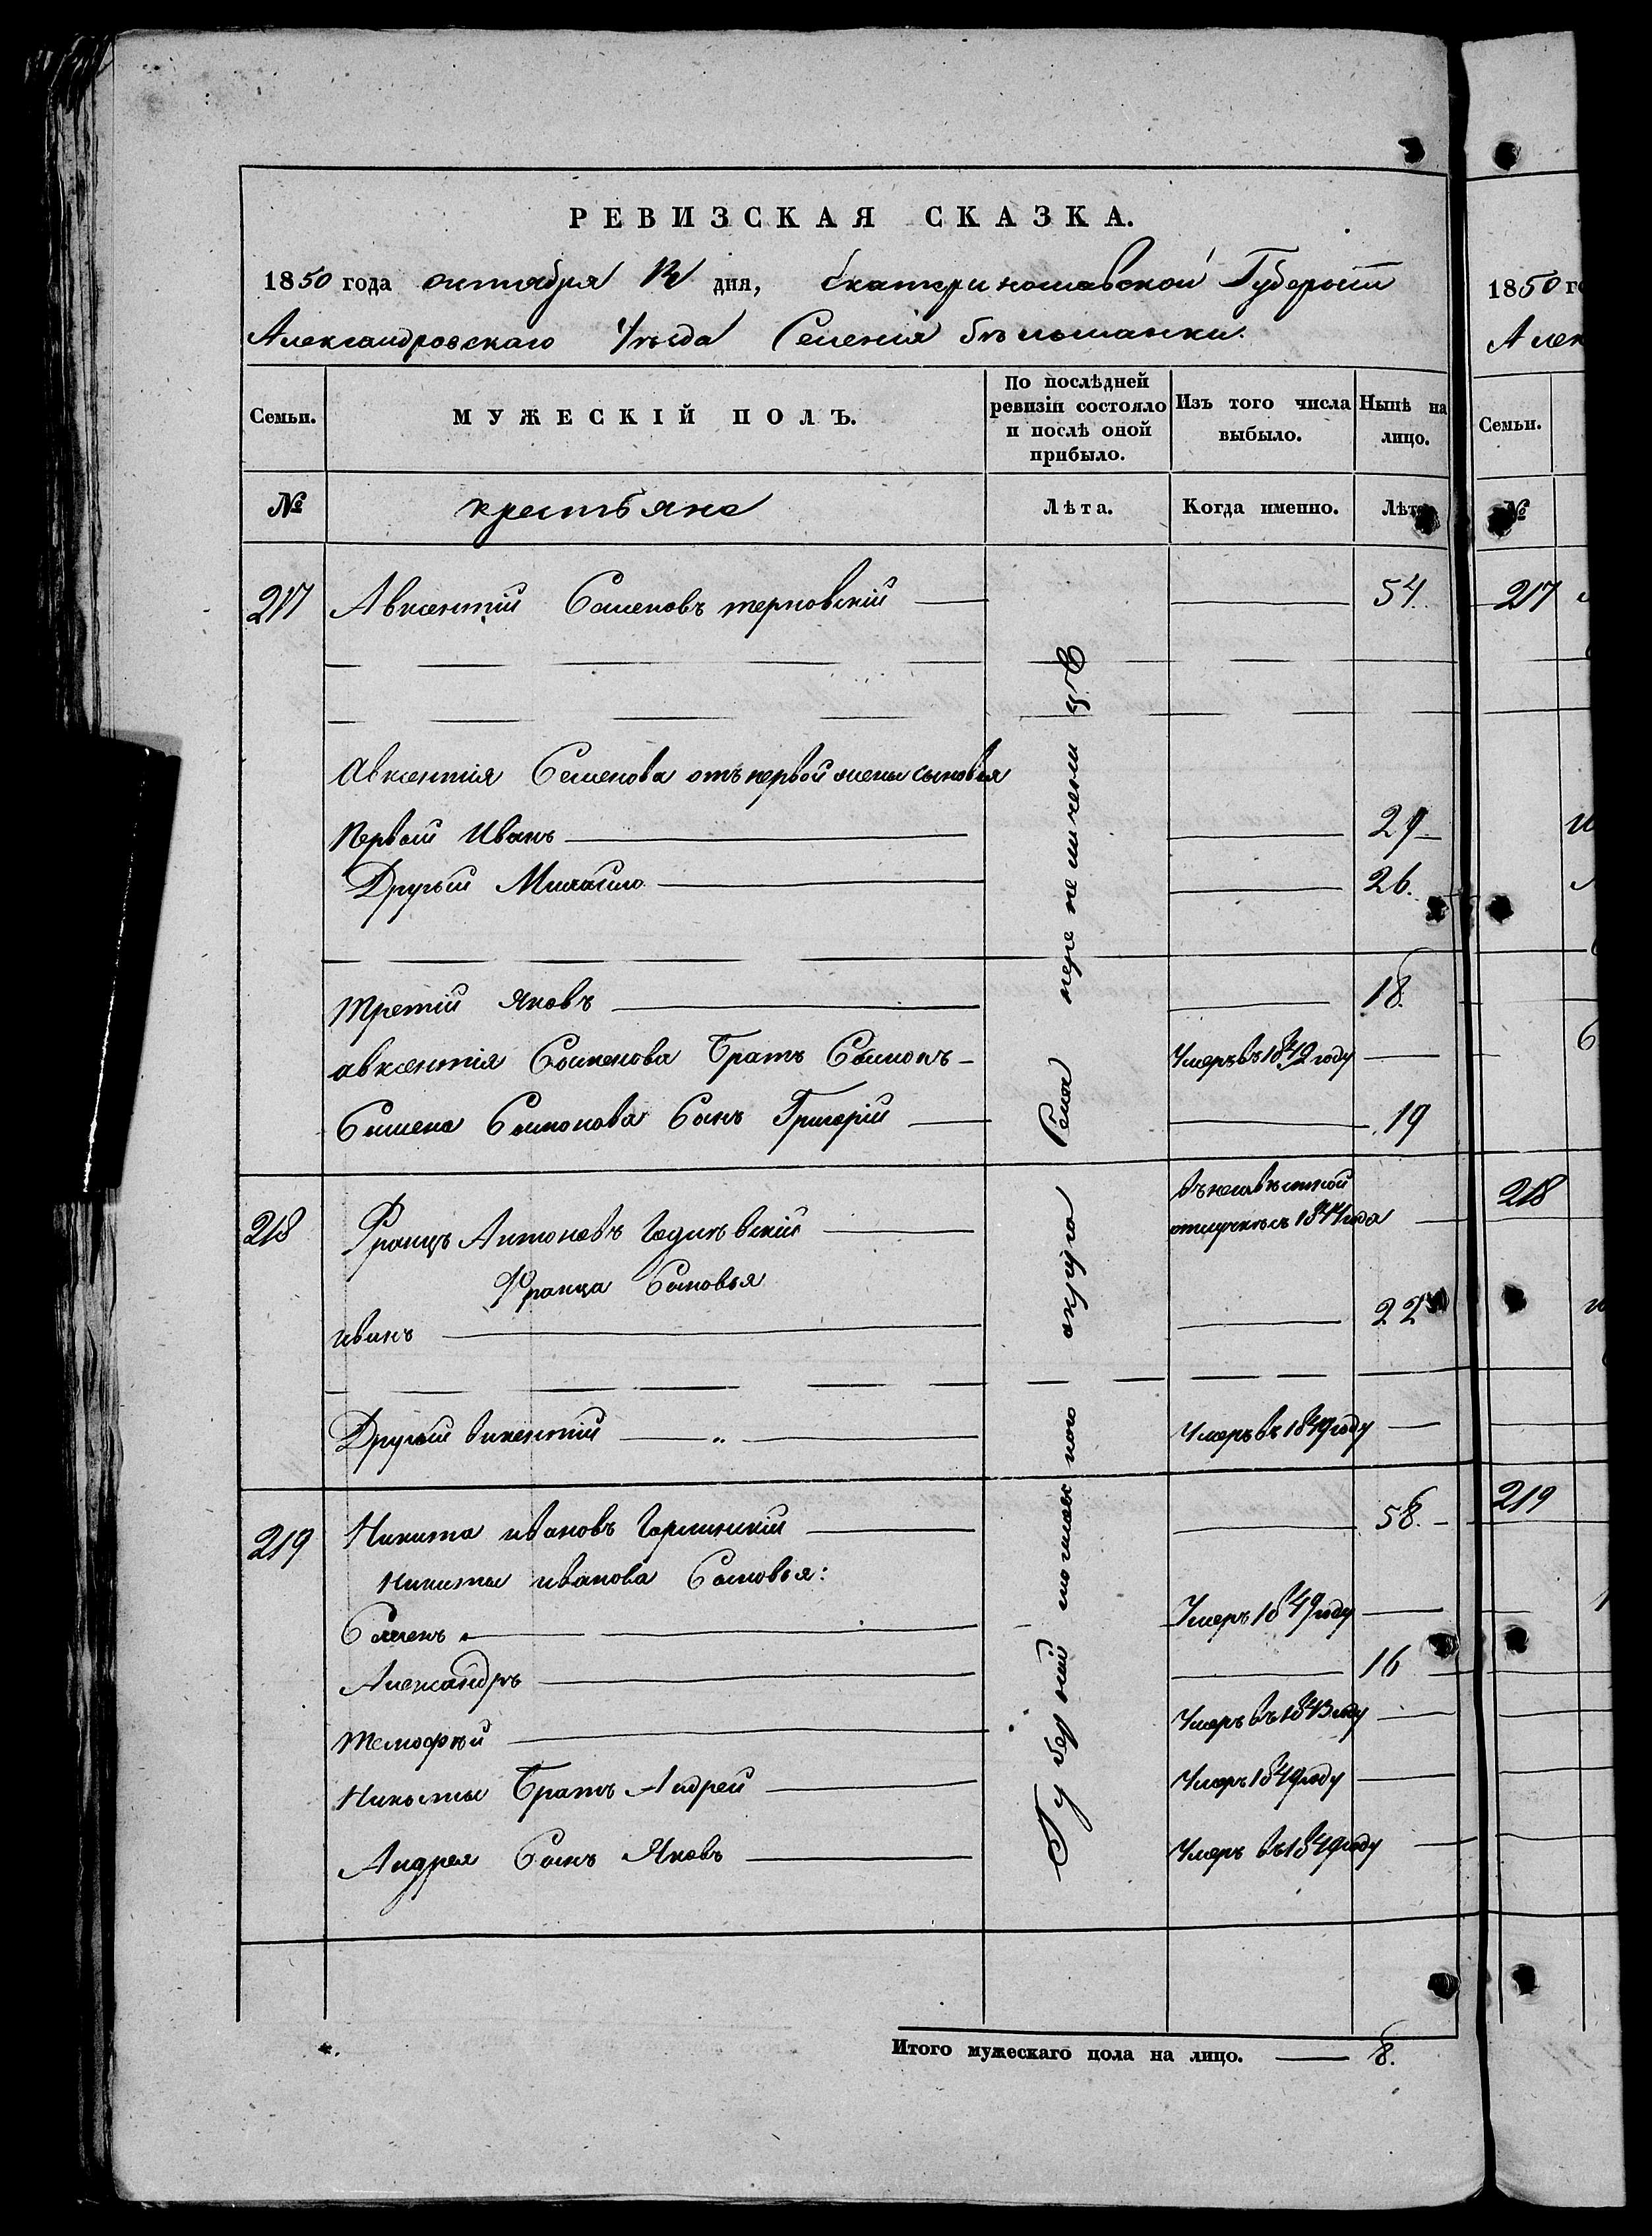 РЕВИЗСКАЯ СКАЗКА.
1850 года октября 12 дня, Екатеринославской Губернии
Александровскаго Уѣзда Селенія Бѣльманки.
Семьи. МУЖЕСКІЙ ПОЛЪ. По послѣдней ревизіи состояло и послѣ оной прибыло. Изъ того числа выбыло. Нынѣ на лицо.
№ крестьяне Лѣта. Когда именно. Лѣта
217 Авксентій Семеновъ терновскій 54.
Авксентія Семенова отъ первой жены сыновья
Первый Иванъ 29
Другій Михайло 26.
Третій Яковъ 18.
авксентія Семенова Братъ Семенъ Умеръ въ 1849 году
Семена Семенова Сынъ Григорій 19
218 Францъ Антоновъ въ неизвѣстной отлучкѣ съ 1844 года
Франца Сыновья
иванъ 22
Другій викентій Умеръ въ 1849 году
219 Никита ивановъ 58.
Никиты иванова Сыновья:
Семенъ Умеръ 1849 году
Александръ 16
Тимофѣй Умеръ въ 1843 году
Никиты Братъ Андрей Умеръ 1849 году
Андрея Сынъ Яковъ Умеръ въ 1849 году
Губерній округа Села перечислены
Итого мужескаго пола на лицо. 8.
1850 го
Алек
Семьи.
№
217
218
219